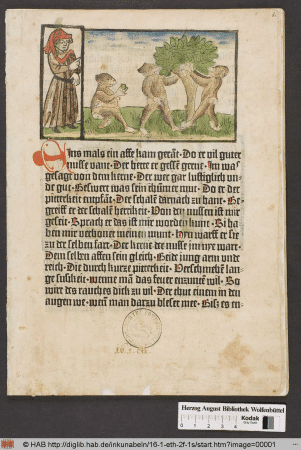 Eins mals ein affe kam gerāt. Do er vil guter
nusse vant. Der hett er gessē gerne. Im was
gesagt von dem kerne. Der wer gar lustiglich vnde
gut. Beswert was sein thūmer mut. Do er der
pitterkeit enpfant. Der schalē darnach zu hant. Begreiff
er der schalē hertikeit. Von den nussen ist mir
geseit. Sprach er das ist mir worden kunt. Si haben
mir verhonet meinen munt. Hyn warff er sie
zu der selben fart. Der kerne der nusse im nye wart.
Dem selben affen sein gleich. Beide jung arm vnd
reich. Die durch kurze pitterkeit. Verschmehē lange
susikeit. wenne man das feuer enzunten wil. So
wirt des rauches dick zu vil. Der thut einem in den
augen we. wen man darzu bleset mer. Bisz es en
Herzog August Bibliothek Wolfenbüttel
Kodak
© HAB http://diglib.hab.de/inkunabeln/16-1-eth-2f-1s/start.htm?image=00001